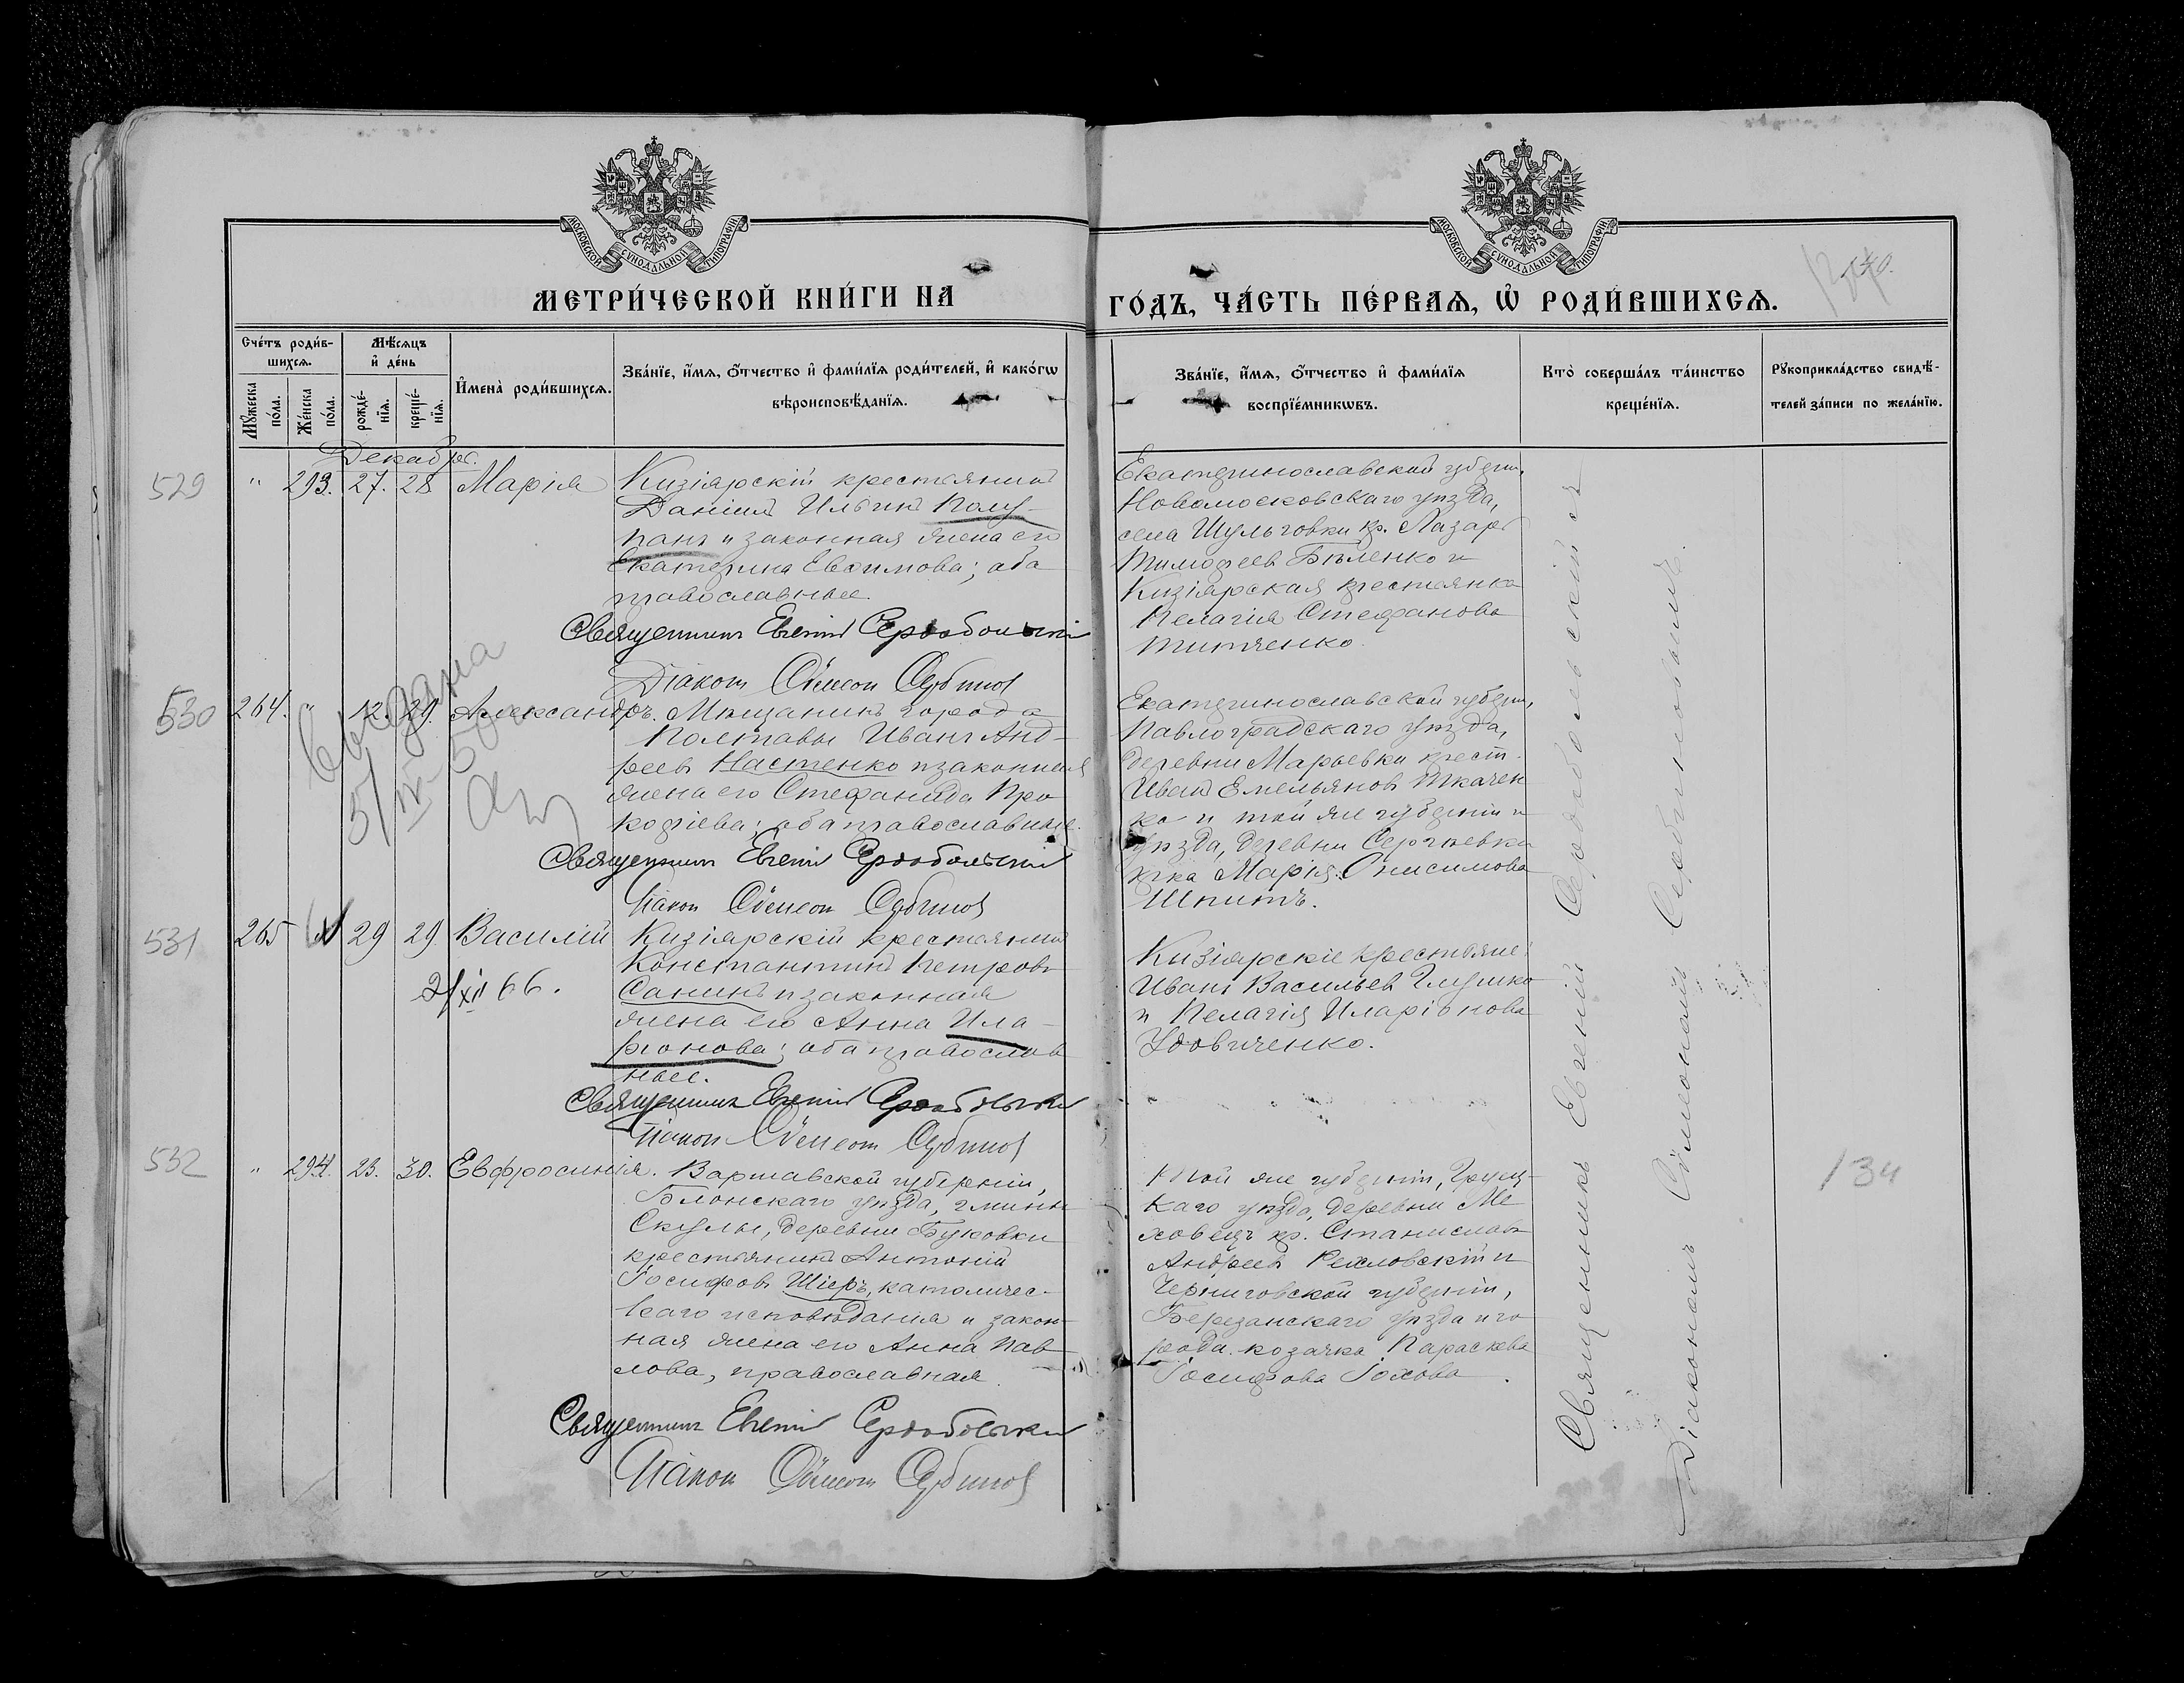 МОСКОВСКОЙ СУНОДАЛЬНОЙ ТИПОГРАФІИ
МОСКОВСКОЙ СУНОДАЛЬНОЙ ТИПОГРАФІИ
МЕТРИ́ЧЕСКОЙ КНИ́ГИ НА
ГО́ДЪ, ЧА́СТЬ ПЕ́РВАѦ, Ѡ҆ РОДИ́ВШИХСѦ.
140.
Сче́тъ роди́в-
шихсѧ.
Мꙋ́жеска по́ла.
Же́нска по́ла.
Мѣ́сѧцъ
и҆ де́нь
рожде́-
нїѧ.
креще́-
нїѧ.
И҆мена̀ роди́вшихсѧ.
Зва́нїе, и҆́мѧ, ѻ҆́тчество и҆ фами́лїѧ роди́телей, и҆ како́гѡ
вѣроисповѣ́данїѧ.
Зва́нїе, и҆́мѧ, ѻ҆́тчество и҆ фами́лїѧ
воспрїе́мникѡвъ.
Кто̀ соверша́лъ та́инство
креще́нїѧ.
Рꙋкоприкла́дство свидѣ́-
телей за́писи по жела́нїю.
Декабрь.
529 " 293. 27. 28 Марія
Кизіярскій крестьянинъ
Даніилъ Ильинъ Полу-
панъ и законная жена его
Екатерина Евѳимова; оба
православные.
Священникъ Евгеній Сердобольскій
Діаконъ Сѵмеонъ Сербиновъ
Екатеринославской губерн.,
Новомосковскаго уѣзда,
села Шульговки кр. Лазарь
Тимоѳеевъ Бѣленко и
Кизіярская крестьянка
Пелагія Стефанова
Титяенко.
530 264. " 12. 29. Александръ.
Мѣщанинъ города
Полтавы Иванъ Анд-
реевъ Настенко и законная
жена его Стефанида Про
кофіева; оба православные.
Священникъ Евгеній Сердобольскій
Діаконъ Сѵмеонъ Сербиновъ
Выдана
5/IV-50
Екатеринославской губерн.,
Павлоградскаго уѣзда,
деревни Марьевки крест.
Иванъ Емельяновъ Ткачен
ко и той же губерніи и
уѣзда, деревни Сергѣевки
кр-ка Марія Онисимова
Шпитъ.
531 265 29 29. Василій
2/XII 66.
Кизіярскій крестьянинъ
Константинъ Петровъ
Санинъ и законная
жена его Анна Ила-
ріонова; оба православ
ные.
Священникъ Евгеній Сердобольскій
Діаконъ Сѵмеонъ Сербиновъ
Кизіярскіе крестьяне:
Иванъ Васильевъ Глушко
и Пелагія Иларіонова
Удовиченко.
532 " 294. 23. 30. Евфросинія.
Варшавской губерніи,
Блонскаго уѣзда, гмины
Скулы, деревни Буковки
крестьянинъ Антоній
Іосифовъ Шіеръ, католичес-
каго исповѣданія и закон
ная жена его Анна Пав
лова, православная.
Священникъ Евгеній Сердобольскій
Діаконъ Сѵмеонъ Сербиновъ
Той же губерніи, Груец-
каго уѣзда, деревни Ме
ховецъ кр. Станиславъ
Андреевъ и
Черниговской губерніи,
Березанскаго уѣзда и го
рода козачка Параскева
Іосифова
134
Священникъ Евгеній Сердобольскій съ
Діакономъ Сѵмеономъ Сербиновымъ.